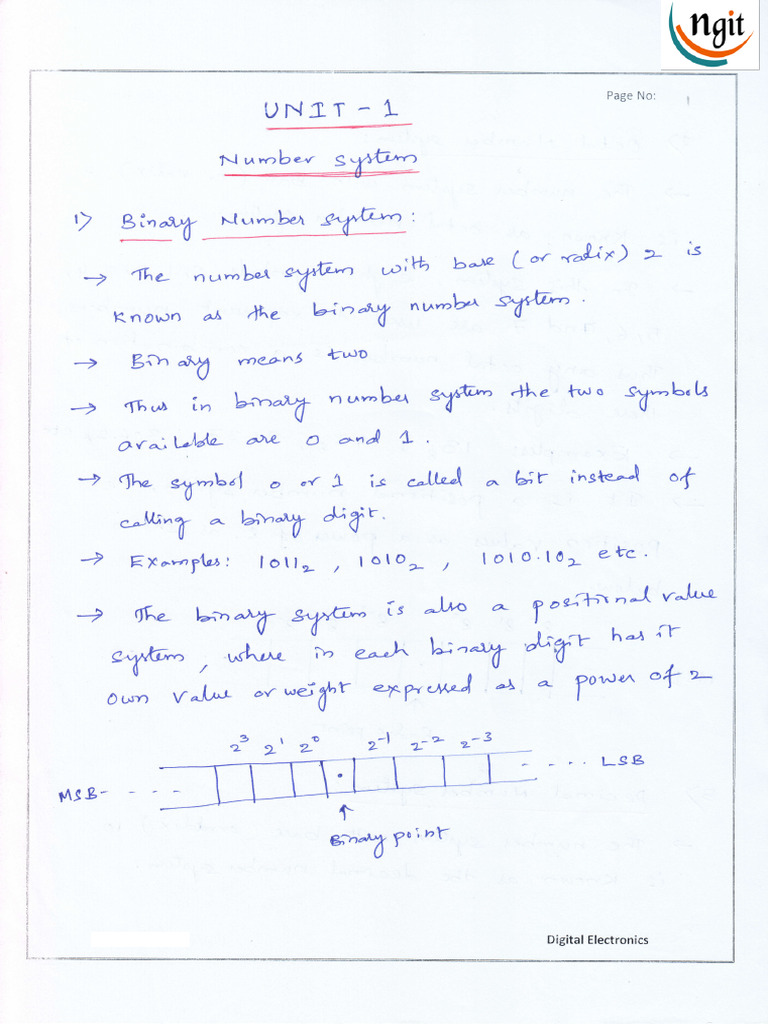 Ngit
Page No: 1
UNIT - 1
Number system
1) Binary Number system:
→ The number system with base (or radix) 2 is
known as the binary number system.
→ Binary means two
→ Thus in binary number system the two symbols
available are 0 and 1.
→ The symbol 0 or 1 is called a bit instead of
calling a binary digit.
→ Examples: 1011₂ , 1010₂ , 1010.10₂ etc.
→ The binary system is also a positional value
system, where in each binary digit has it
own value or weight expressed as a power of 2
2³ 2¹ 2⁰ 2⁻¹ 2⁻² 2⁻³
MSB- - - - . - - - - LSB
↑
Binary point
Digital Electronics